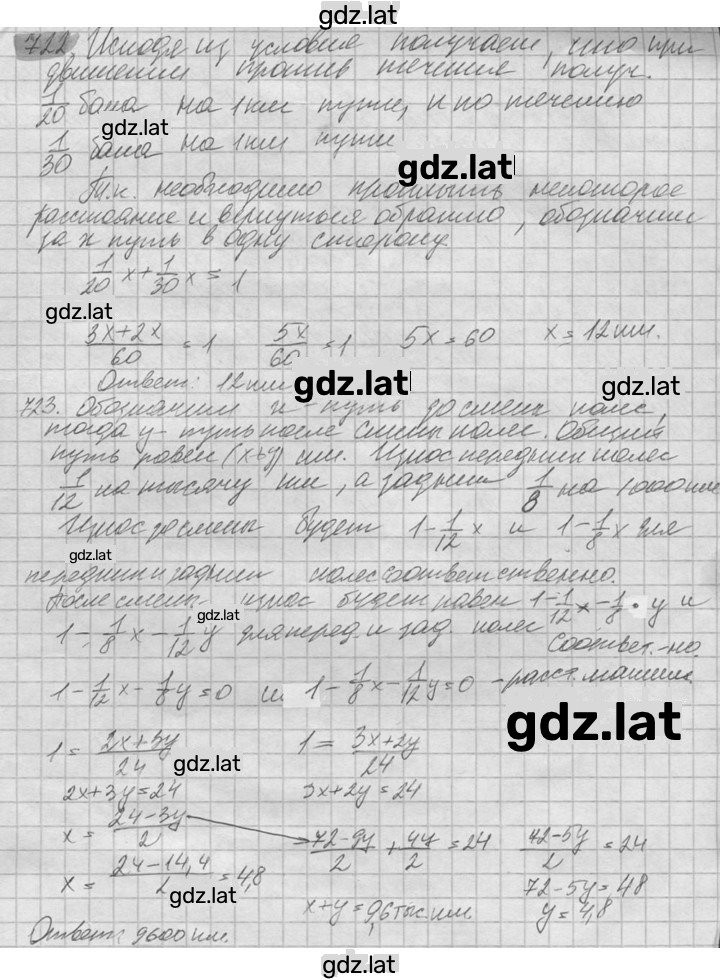 gdz.lat
722. Исходя из условие получаем, что при
движении против течения получ.
1/20 бака на 1 км пути, и по течению
gdz.lat
1/30 бака на 1 км пути
gdz.lat
Т.к. необходимо проплыть некоторое
расстояние и вернуться обратно, обозначим
за x путь в одну сторону
1/20 x + 1/30 x = 1
gdz.lat
(3x+2x)/60 = 1   5x/60 = 1   5x = 60   x = 12 км.
Ответ: 12 км
gdz.lat
gdz.lat
723. Обозначим x - путь до смены колес,
тогда y - путь после смены колес. Общий
путь равен (x+y) км. Износ передних колес
1/12 на тысячу км, а задних 1/8 на 1000 км
Износ до смены будет 1 - 1/12 x и 1 - 1/8 x для
gdz.lat
передних и задних колес соответственно.
После смены износ будет равен 1 - 1/12 x - 1/8 · y и
gdz.lat
1 - 1/8 x - 1/12 y для перед. и зад. колес
соответ.-но.
1 - 1/12 x - 1/8 y = 0 и 1 - 1/8 x - 1/12 y = 0 - расст. машин.
gdz.lat
1 = (2x+3y)/24   1 = (3x+2y)/24
gdz.lat
2x+3y=24   3x+2y=24
x = (24-3y)/2   (72-9y)/2 + 4y/2 = 24   (72-5y)/2 = 24
x = (24-14,4)/2 = 4,8   72-5y=48
gdz.lat
x+y = 9,6 тыс. км.   y = 4,8
gdz.lat
Ответ: 9600 км.
gdz.lat